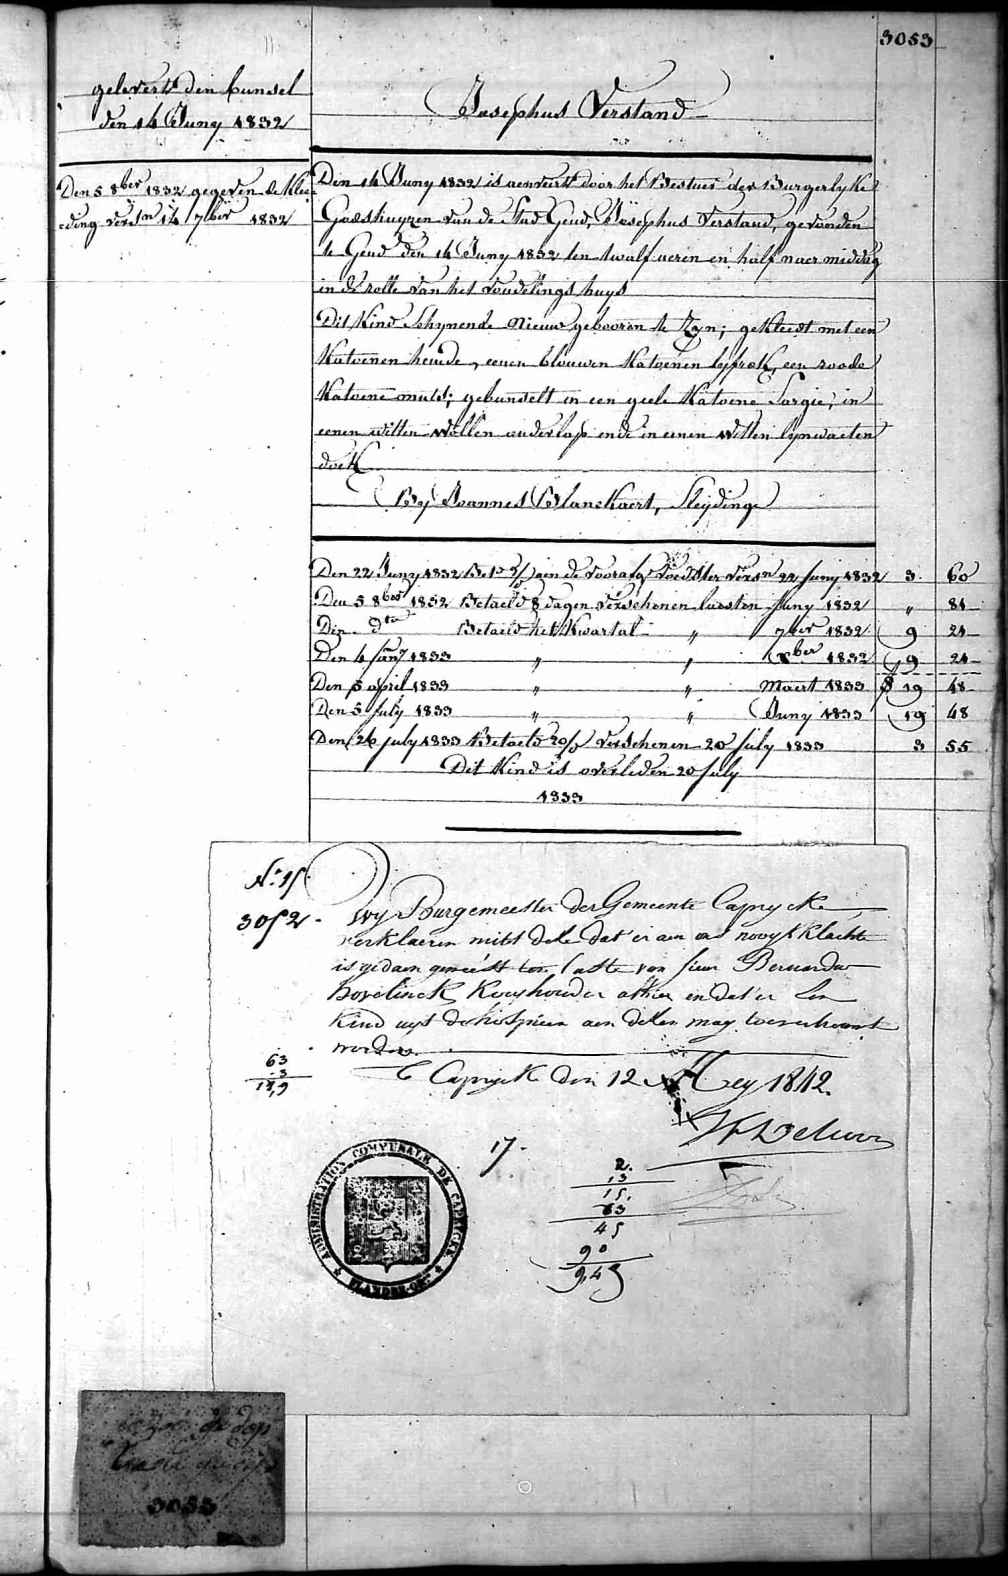 3053
gelevert den bunsel
den 14 Juny 1832
Josephus Verstand
Den 5 8ber 1832 gegeven de klee-
ding versn 14 7ber 1832
Den 14 Juny 1832 is aenveert door het Bestuer der Burgerlyke
Godshuyzen van de Stad Gend, Josephus Verstand, gevonden
te Gend den 14 Juny 1832 ten twalf ueren en half naer middag
in de rolle van het vondelings huys
Dit Kind schynende nieuw gebooren te Zyn; gekleedt met een
Katoenen hemde, eenen blouwen Katoenen lyfrok, een roode
Katoene muts; gebunselt in een geele Katoene Sargie, in
eenen witten wollen onderlap ende in eenen witten lynwaeten
doek
By Joannes Blanckaert, Sleydinge
Den 22 Juny 1832 Bet. aen de voorafg voedster versn 22 Juny 1832 3. 60
Den 5 8ber 1832 Betaeld 8 dagen verschenen laesten Juny 1832 " 81
Den dto Betaeld het Kwartal " 7ber 1832 9 21
Den 4 Jany 1833 " " Xber 1832 19 21
Den 5 april 1833 " " Maert 1833 19 48
Den 5 July 1833 " " Juny 1833 19 48
Den 26 July 1833 Betaeld 20/ verschenen 20 July 1833 3 55
Dit Kind is overleden 20 July
1833
No 15
3052.
Wy Burgemeester der Gemeente Caprycke
verklaeren mits deze dat er aen ons nooyt klachte
is gedaen geweest ten laste van sieur Bernardus
Hovelinck Koeyhouder alhier en dat er een
Kind uyt de hospicien aen dezen mag toevertrouwt
worden.
Caprycke den 12 Mey 1842.
63
3
189
17.
2.
13
15.
63
45
90
9,45
ADMINISTRATION COMMUNALE DE CAPRYCKE
FLANDRE-ORle
3053